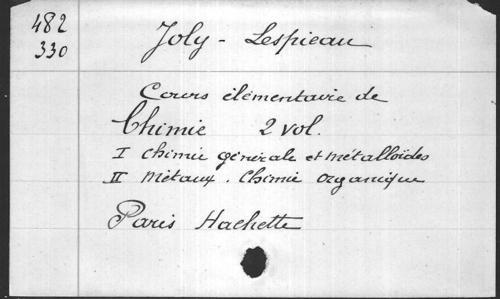 482
330
Joly - Lespieau
Cours élémentaire de
Chimie 2 vol.
I Chimie générale et métalloïdes
II Métaux. Chimie organique
Paris Hachette